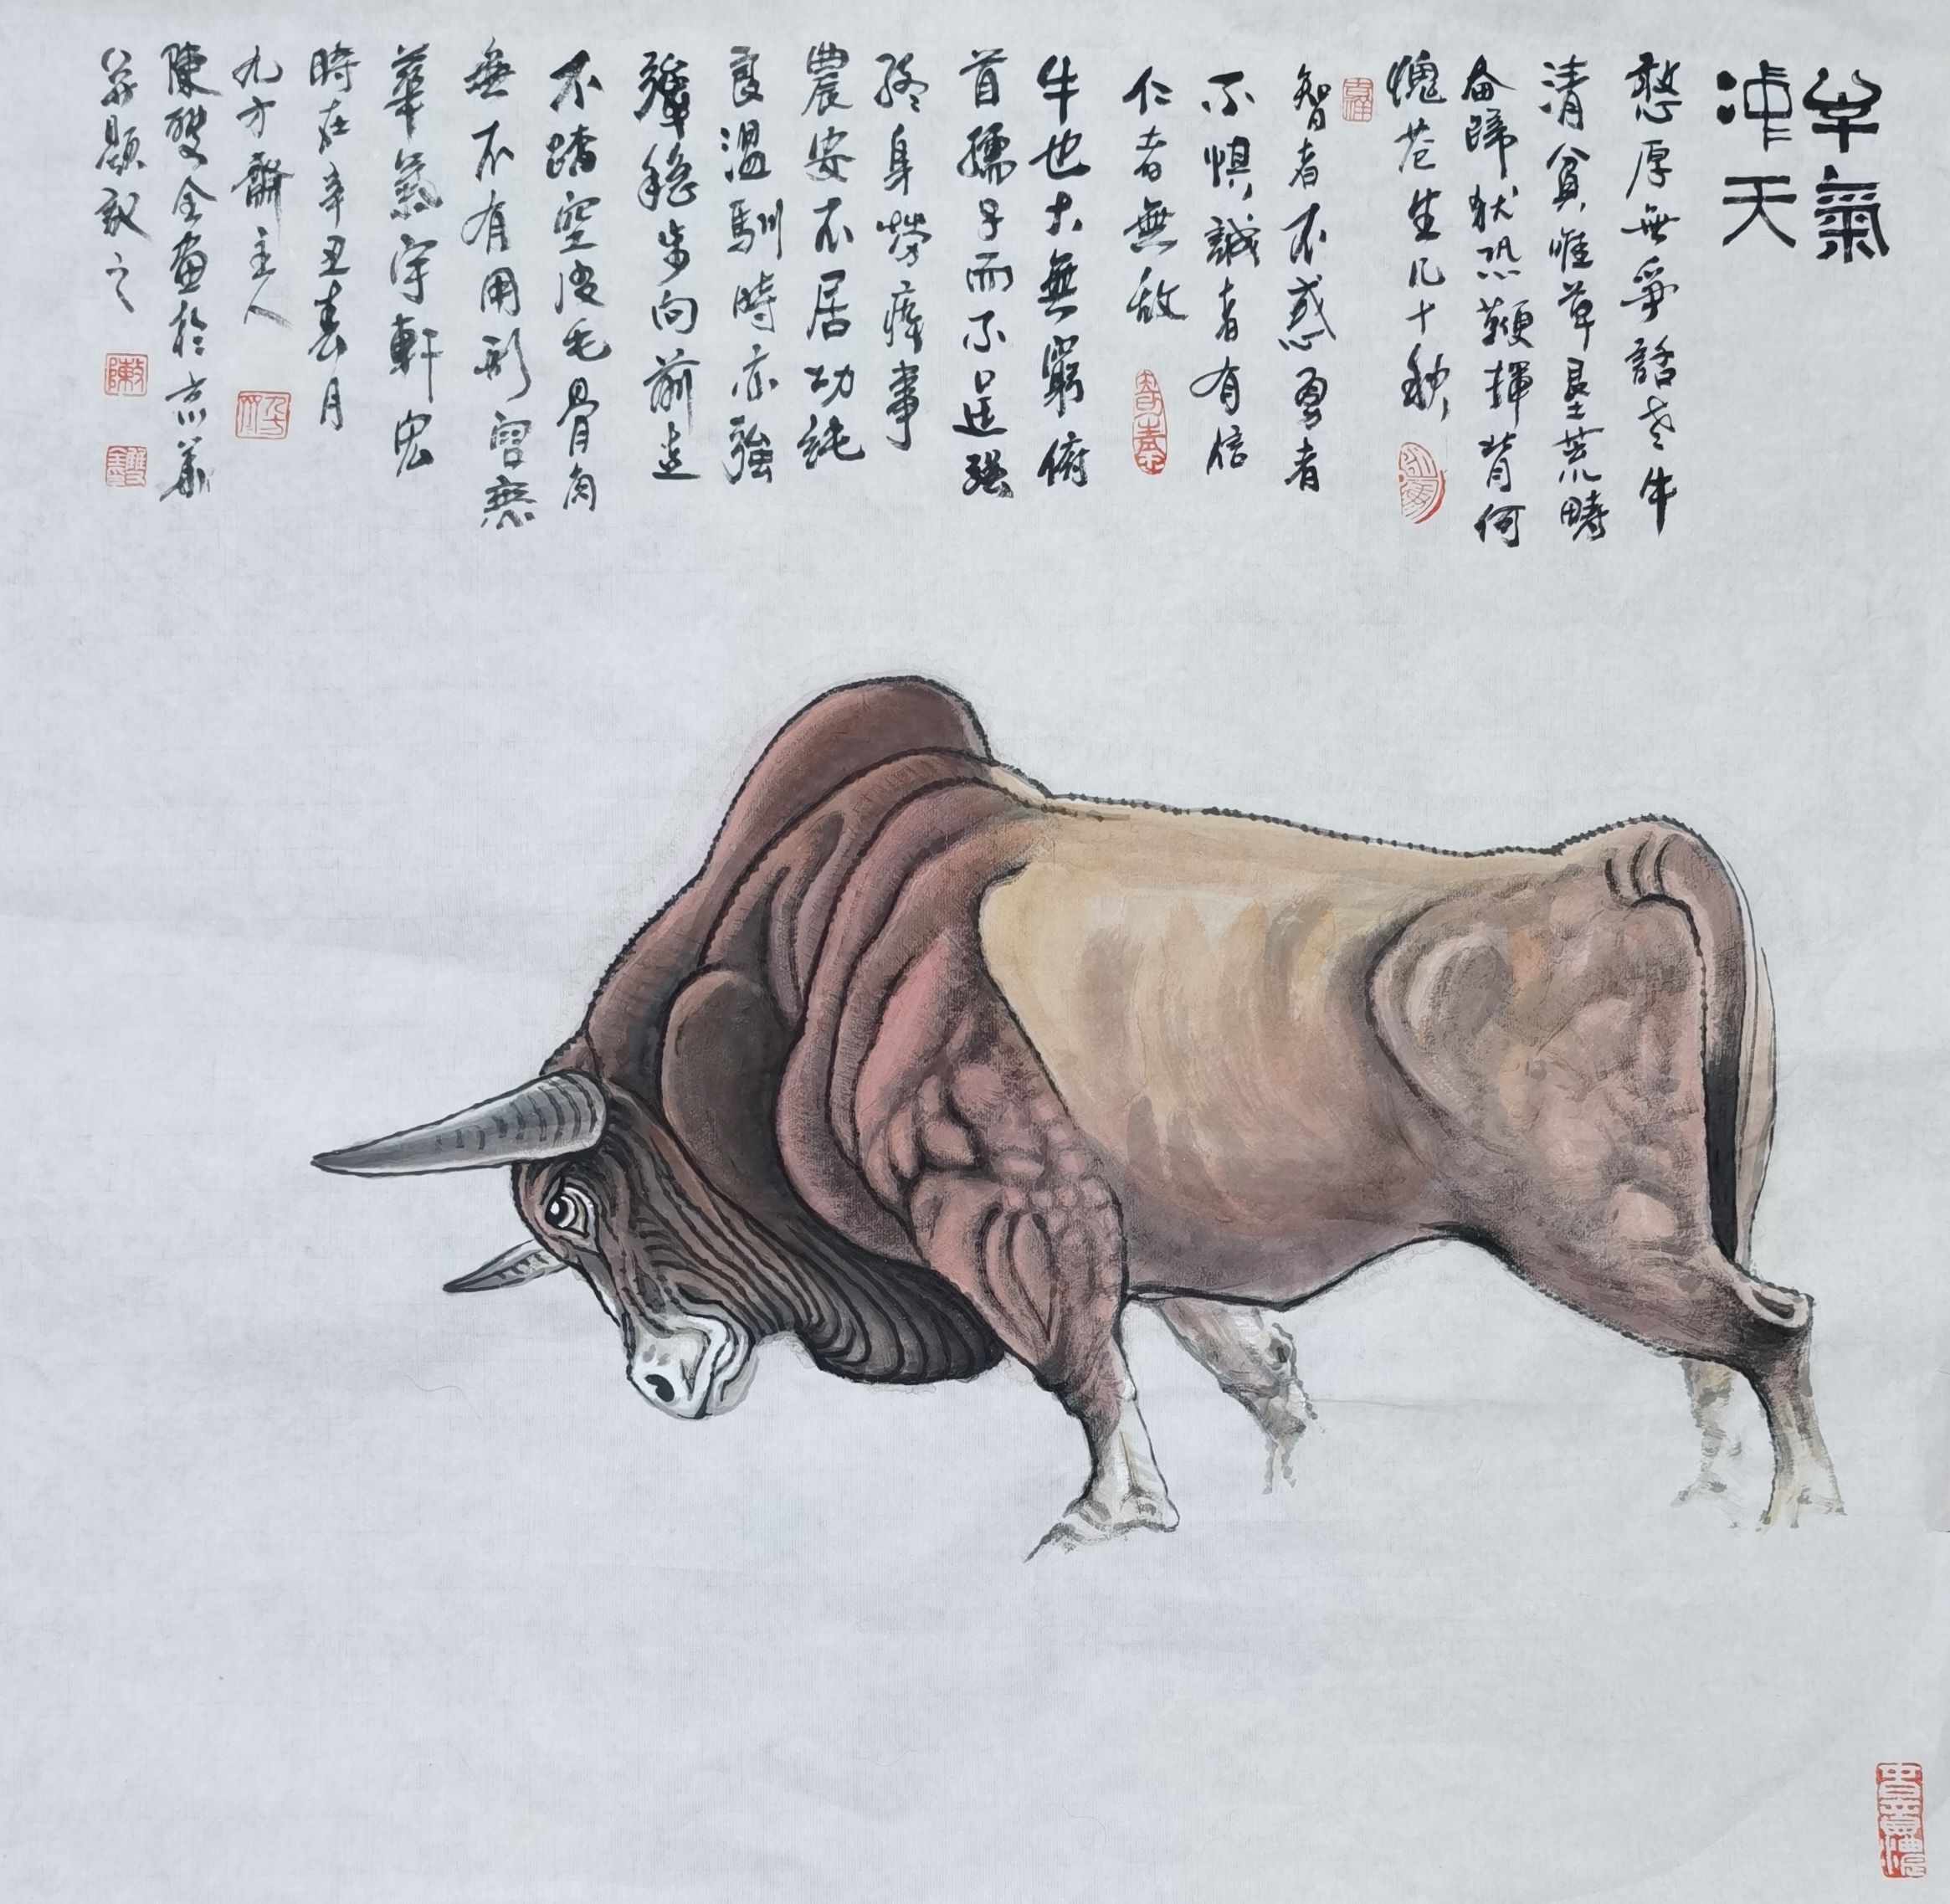 牛氣
沖天
憨厚無爭話老牛
清貧惟草墾荒疇
奋蹄狀恐鞭揮背何
愧苍生几十秋
智者不惑勇者
不惧誠者有信
仁者無敌
牛也古無窮俯
首孺子而不逞强
終身勞瘁事
農安不居功純
良溫馴時亦強
犟穩步向前走
不踏空皮毛骨角
無不有用形容無
華氣宇軒宏
時在辛丑春月
九方齋主人
陳雙全畫於京華
並題記之